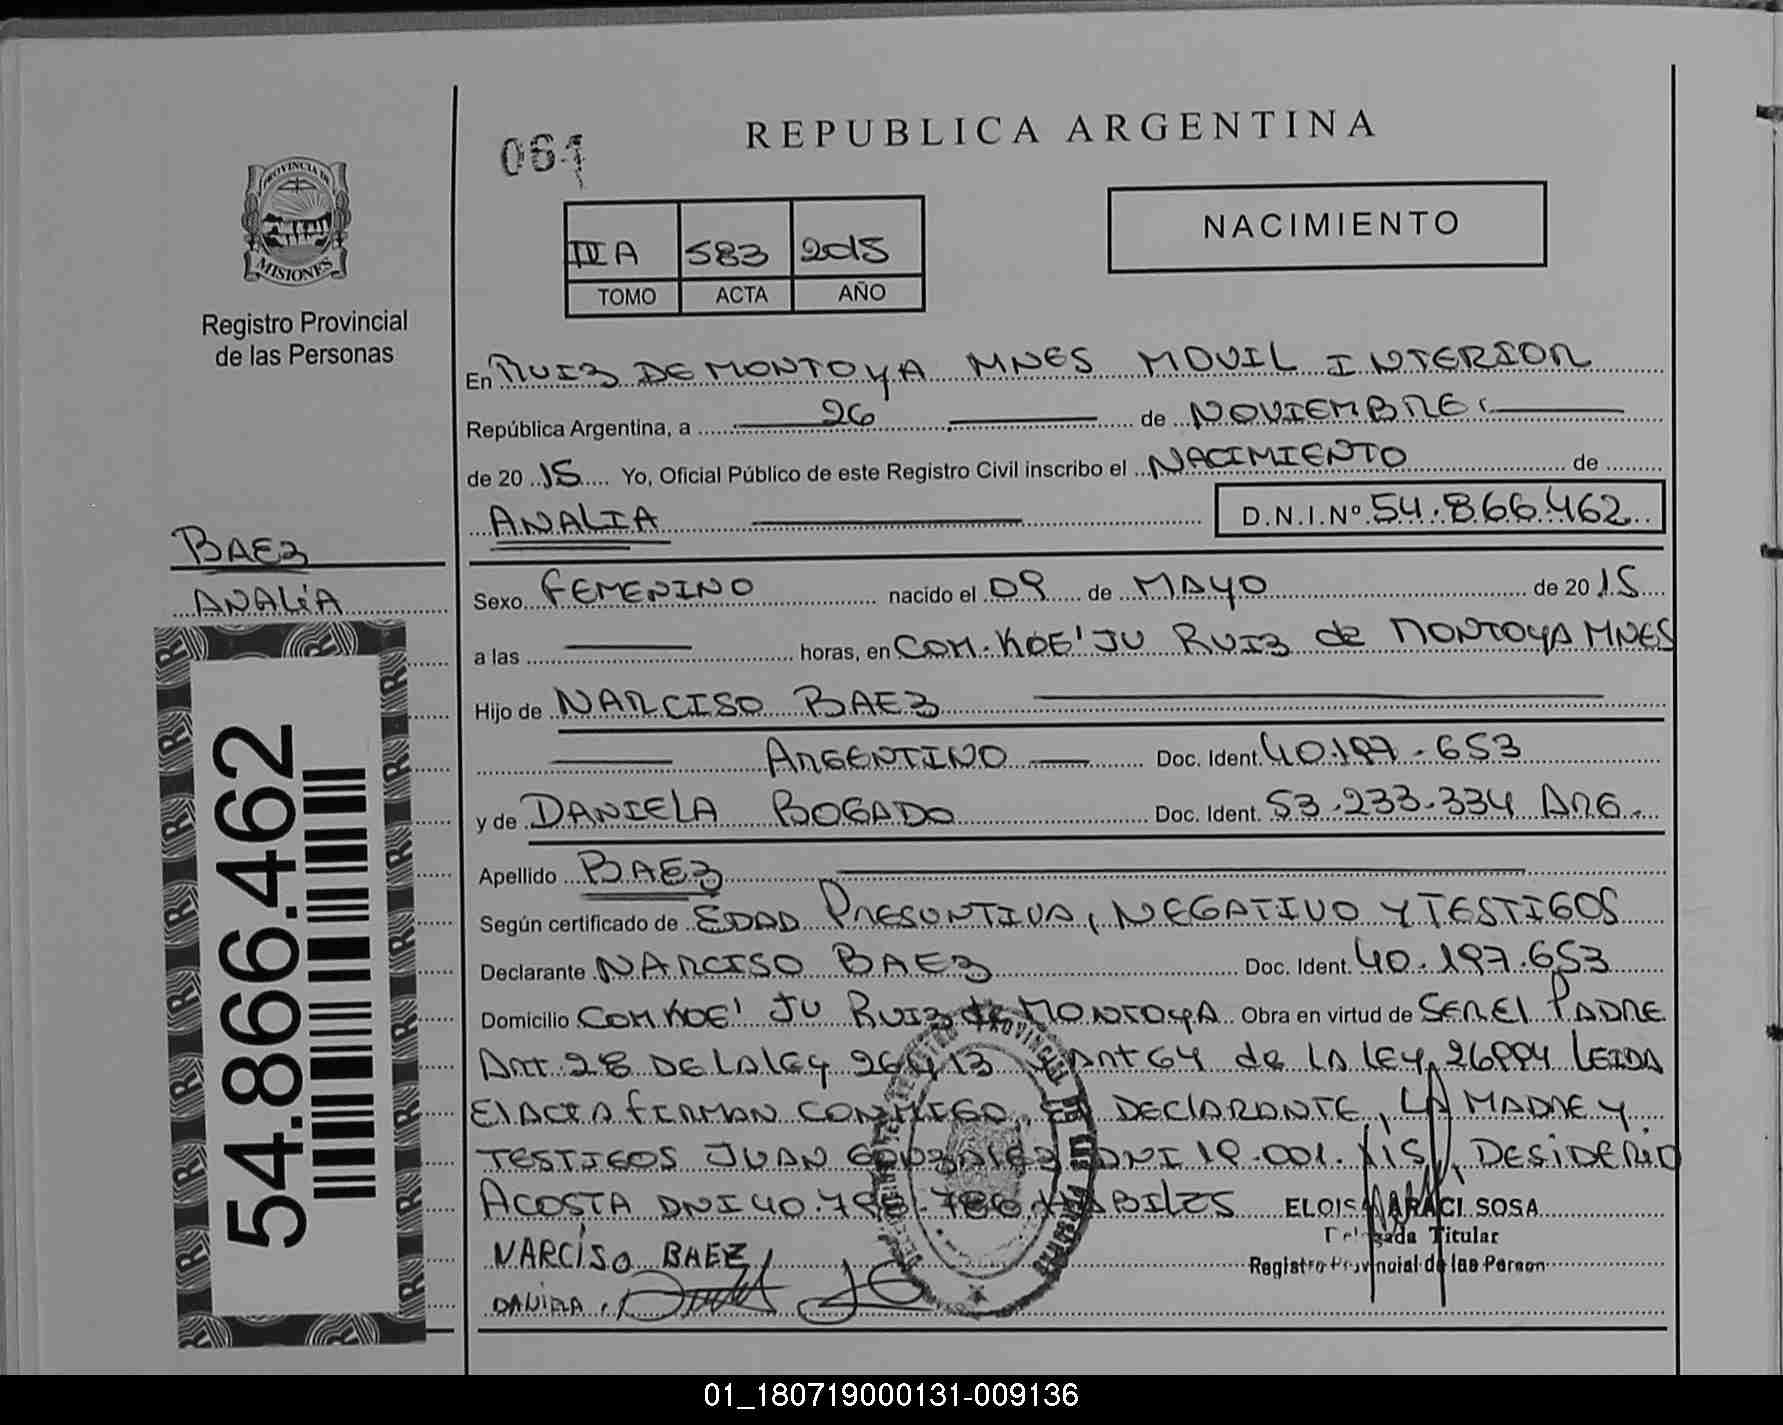 061
REPUBLICA ARGENTINA
PROVINCIA DE
MISIONES
Registro Provincial
de las Personas
A 583 2015
TOMO ACTA AÑO
NACIMIENTO
En RUIZ DE MONTOYA MNES MOVIL INTERIOR
República Argentina, a 26 de NOVIEMBRE
de 20 15 Yo, Oficial Público de este Registro Civil inscribo el NACIMIENTO de
ANALIA D.N.I.Nº 54.866.462
BAEZ
ANALIA
Sexo FEMENINO nacido el 09 de MAYO de 20 15
a las horas, en COM. KOE'JU RUIZ de MONTOYA MNES
Hijo de NARCISO BAEZ
ARGENTINO Doc. Ident. 40.197.653
y de DANIELA BOGADO Doc. Ident. 53.233.334 ARG.
Apellido BAEZ
Según certificado de EDAD PRESUNTIVA, NEGATIVO Y TESTIGOS
Declarante NARCISO BAEZ Doc. Ident. 40.197.653
Domicilio COM. KOE' JU RUIZ de MONTOYA Obra en virtud de SER EL PADRE
ART 28 DE LA LEY 26413 ART 64 de LA LEY 26994 LEIDA
El ACTA FIRMAN CONMIGO, El DECLARANTE, LA MADRE Y
TESTIGOS JUAN GONZALEZ DNI 19.001. DESIDERIO
ACOSTA DNI 40. HABILES
ELOISA ARACI SOSA
Delegada Titular
Registro Provincial de las Person
NARCISO BAEZ
54.866.462
01_180719000131-009136